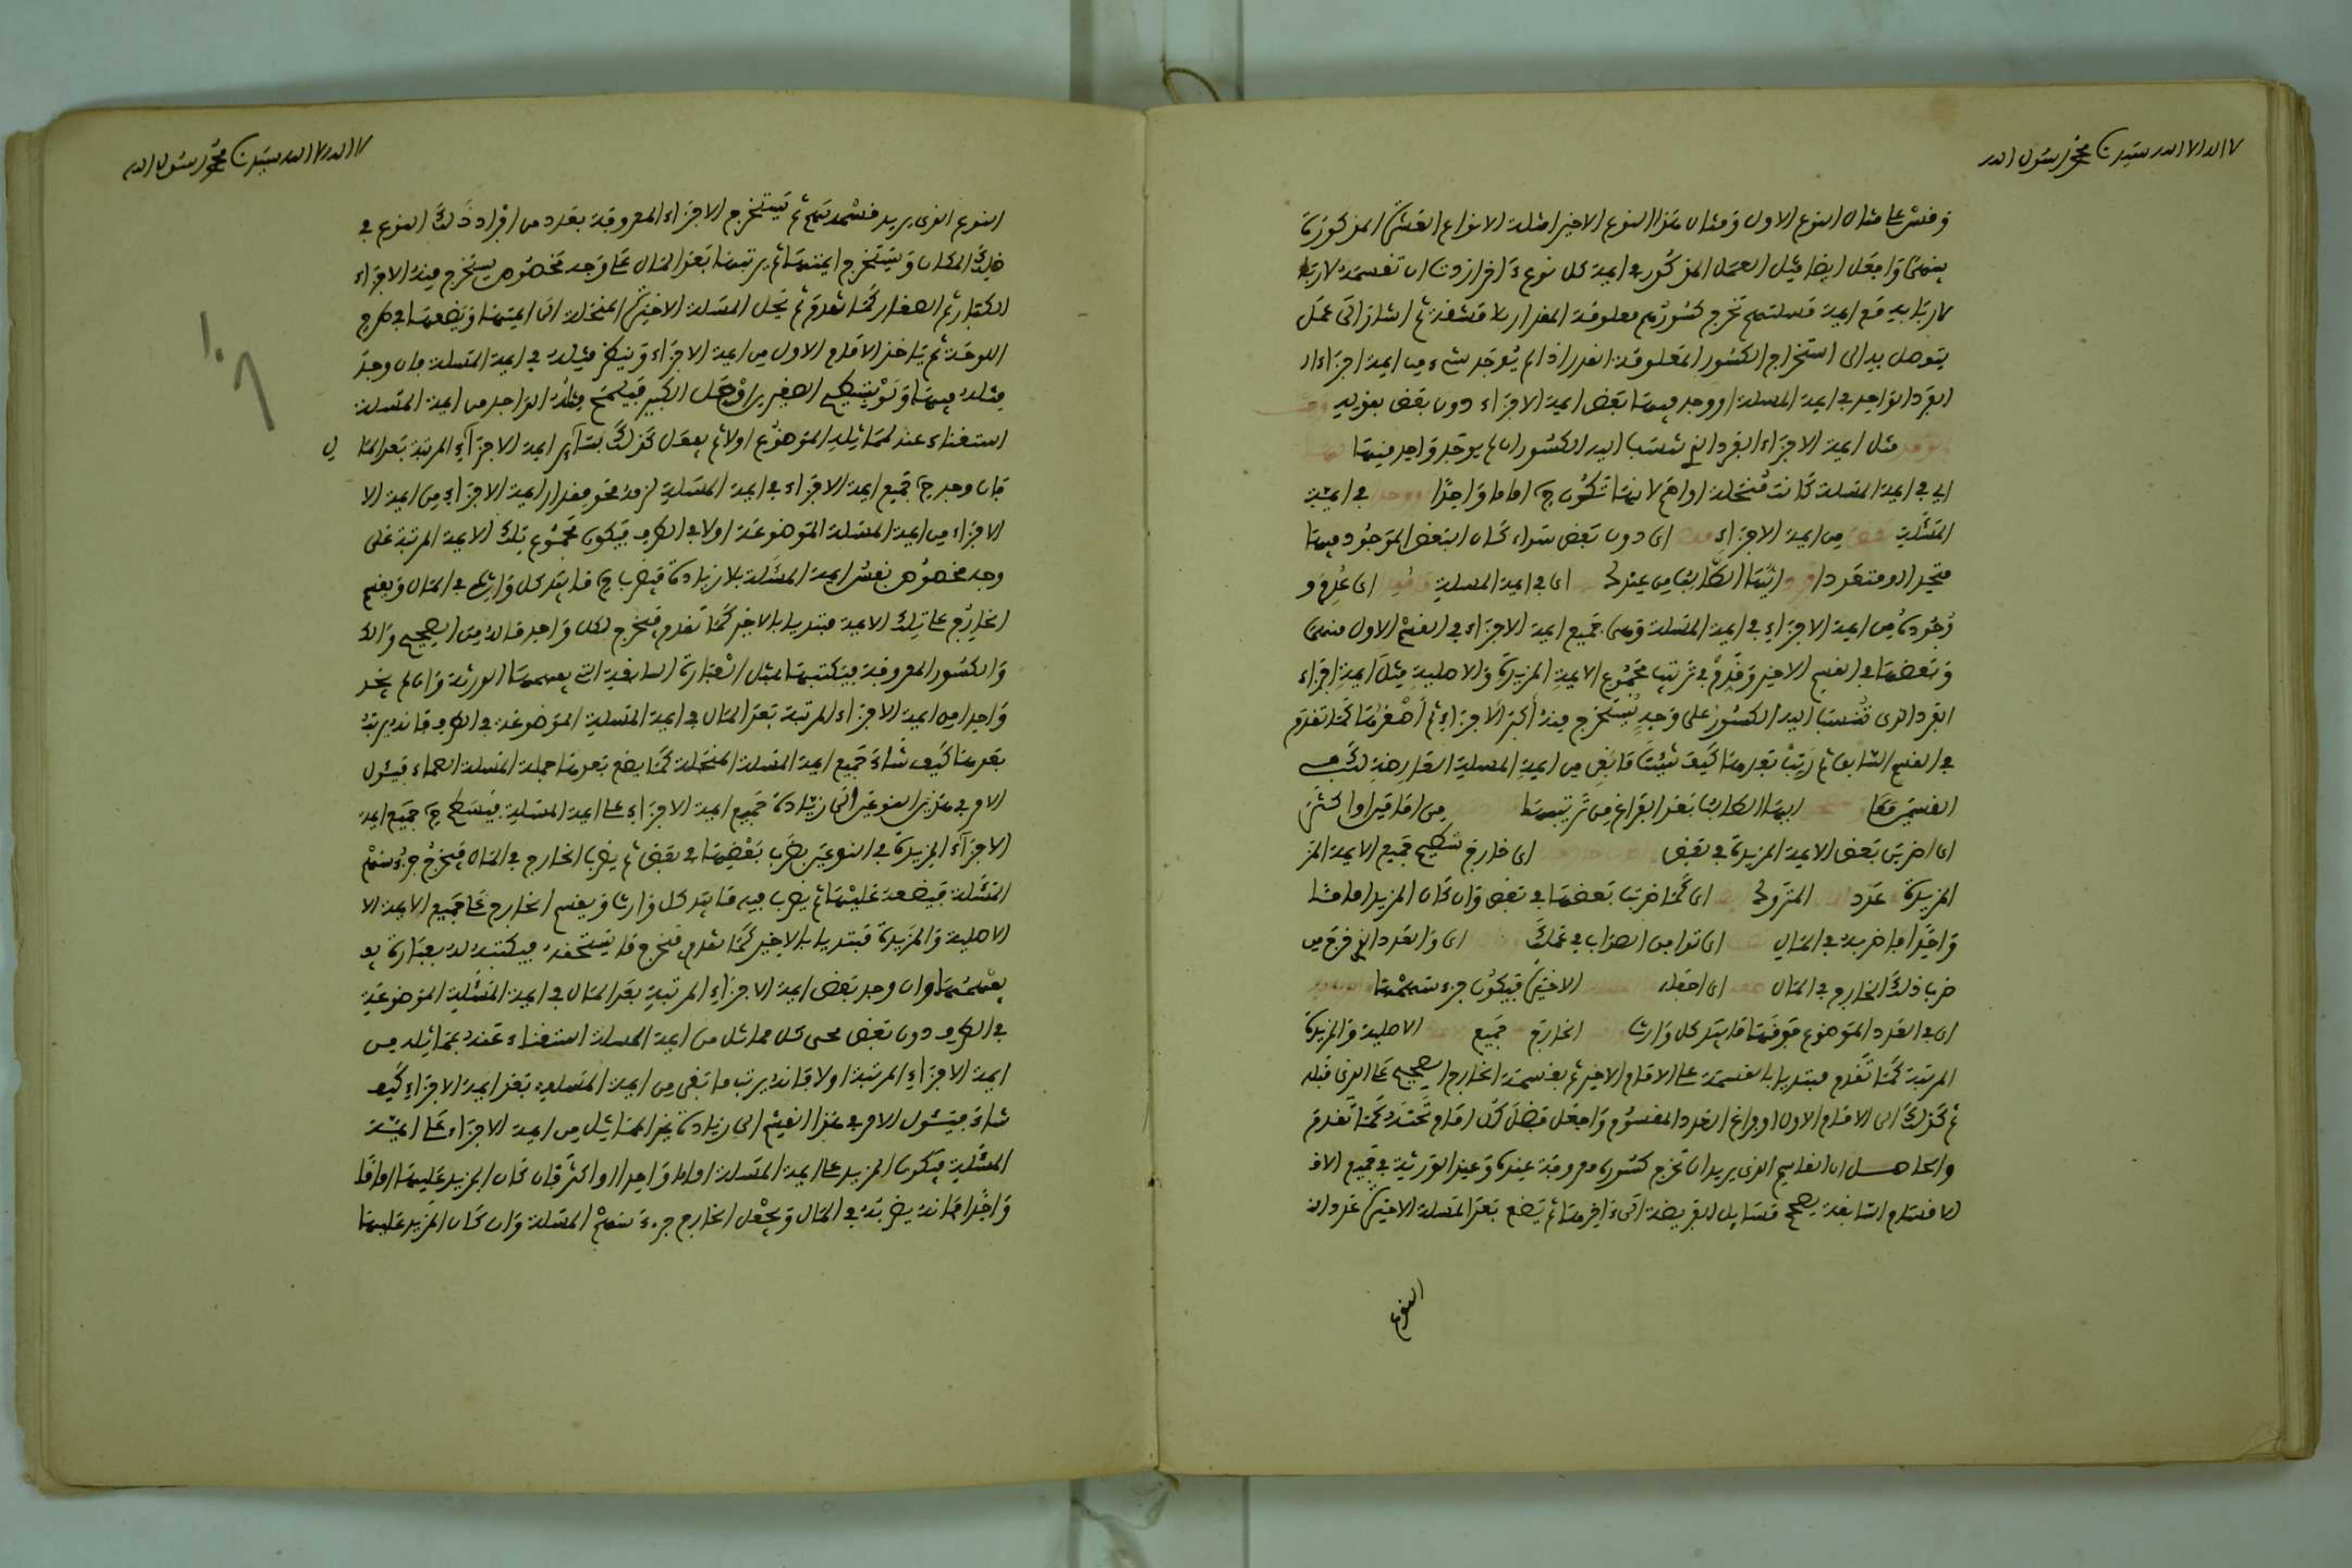 لا اله الا الله سيدنا محمد رسول الله
وقس على مثال النوع الاول ومثال هذا النوع الاخير امثلة الانواع العشرة المذكورة
بينهما واجعل ايضا مثل العمل المذكور في ايمة كل نوع اخر اردت ان تقسمه لاربابه
لاربابه مع ايمة مسلتهم تخرج كسورهم معلومة المقدار بلا مشقة ثم اشار الى عمل
يتوصل به الى استخراج الكسور المعلومة القدر اذا لم يوجد شيء من ايمة اجزاء ال
الفرد الواحد في ايمة المسلة او وجد فيها بعض ايمة الاجزاء دون بعض بقوله
مثل ايمة الاجزاء الفرد الذي تنسب اليه الكسور ان لم يوجد واحد منها
اي في ايمة المسلة كانت منحلة او لم لانها تكون ح اماما واحدا في ايمة
المسلة من ايمة الاجزاء اي دون بعض سواء كان البعض الموجود فيها
متحدا او متعددا ايها الكاتب من عندك اي في ايمة المسلة اي عدم و
وجوده من ايمة الاجزاء في ايمة المسلة وهي جميع ايمة الاجزاء في القسم الاول منهما
وبعضها في القسم الاخير وقدم في ترتيب مجموع الايمة المزيدة والاصلية مثل ايمة اجزاء
الفرد الذي تنسب اليه الكسور على وجه يستخرج منه اكبر الاجزاء ثم اصغرها كما تقدم
في القسم السابق ثم رتب بعدها كيف شئت ما بقي من ايمة المسلة
القسمين معا ايها الكاتب بعد الفراغ من ترتيبها من امامين او اكثر
اي اضرب بعض الايمة المزيدة في بعض اي خارج تسطيح جميع الايمة المز
المزيدة عدد المتروك اي كما ضرب بعضها في بعض وان كان المزيد اماما
واحدا فاضربه في المال اي توا من الصواب في عملك اي والعدد الذي خرج من
ضرب ذلك الخارج في المال اي اجعله الاخيرة فيكون جزء سهمها
اي في العدد الموضوع فوقها ما بيد كل وارث الخارج جميع الاصلية والمزيدة
المرتبة كما تقدم مبتديا بالقسمة على الامام الاخير ثم بقسمة الخارج الصحيح على الذي قبله
ثم كذلك الى الامام الاول او فراغ العدد المقسوم واجعل فضل كل امام تحته كما تقدم
والحاصل ان القاسم الذي يريد ان تخرج كسوره معروفة عنده وعند الورثة في جميع الاق
الاقسام السابقة يصحح مسايل الفريضة الى اخرها ثم يضع بعد المسلة الاخيرة عدد ال
النوع
لا اله الا الله سيدنا محمد رسول الله
النوع الذي يريد قسمته ثم يستخرج الاجزاء المعروفة بعدد من افراد ذلك النوع في
ذلك المكان ويستخرج ايمتها ثم يرتبها بعد المال على وجه مخصوص يستخرج منه الاجزاء
الكبار ثم الصغار كما تقدم ثم يحل المسلة الاخيرة المنحلة الى ايمتها ويضعها في طرح
اللوحة ثم ياخذ الامام الاول من ايمة الاجزاء وينظر مثله في ايمة المسلة فان وجد
مثله فيها ولو بتسطيح الصغير او حل الكبير فيطرح مثله الواحد من ايمة المسلة
استغناء عنه لمماثله الموضوع اولا ثم يفعل كذلك بسائر ايمة الاجزاء المرتبة بعد الما
ل
فان وجد ح جميع ايمة الاجزاء في ايمة المسلة لزمه محو مقدار ايمة الاجزاء من ايمة الا
الاجزاء من ايمة المسلة الموضوعة اولا في الطرف فيكون مجموع تلك الايمة المرتبة على
وجه مخصوص نفس ايمة المسلة بلا زيادة فيضرب ح ما بيد كل وارث في المال ويقسم
الخارج على تلك الايمة مبتديا بالاخير كما تقدم فيخرج لكل واحد ماله من الصحيح وال
والكسور المعروفة فيكتبها بمثل العبارة السابقة التي يفهمها الورثة وان لم يجد
واحدا من ايمة الاجزاء المرتبة بعد المال في ايمة المسلة الموضوعة في الطرف فانه يرتب
بعدها كيف شاء جميع ايمة المسلة المنحلة كما يضع بعدها جملة المسلة الصماء فيئول
الامر في هذين النوعين الى زيادة جميع ايمة الاجزاء على ايمة المسلة فيسطح ح جميع ايمة
الاجزاء المزيدة في النوعين بضرب بعضها في بعض ثم يضرب الخارج في المال فيخرج جزء سهم
المسلة فيضعه عليها ثم يضرب فيه ما بيد كل وارث ويقسم الخارج على جميع الايمة الا
الاصلية والمزيدة مبتديا بالاخير كما تقدم فيخرج ما يستحقه فيكتبه له بعبارة يف
يفهمها وان وجد بعض ايمة الاجزاء المرتبة بعد المال في ايمة المسلة الموضوعة
في الطرف دون بعض محى كل مماثل من ايمة المسلة استغناء عنه بمماثله من
ايمة الاجزاء المرتبة اولا فانه يرتب ما بقي من ايمة المسلة بعد ايمة الاجزاء كيف
شاء فيئول الامر في هذا القسم الى زيادة غير المماثل من ايمة الاجزاء على ايمة
المسلة فيكون المزيد على ايمة المسلة اماما واحدا او اكثر فان كان المزيد عليها اماما
واحدا فانه يضربه في المال ويجعل الخارج جزء سهم المسلة وان كان المزيد عليها